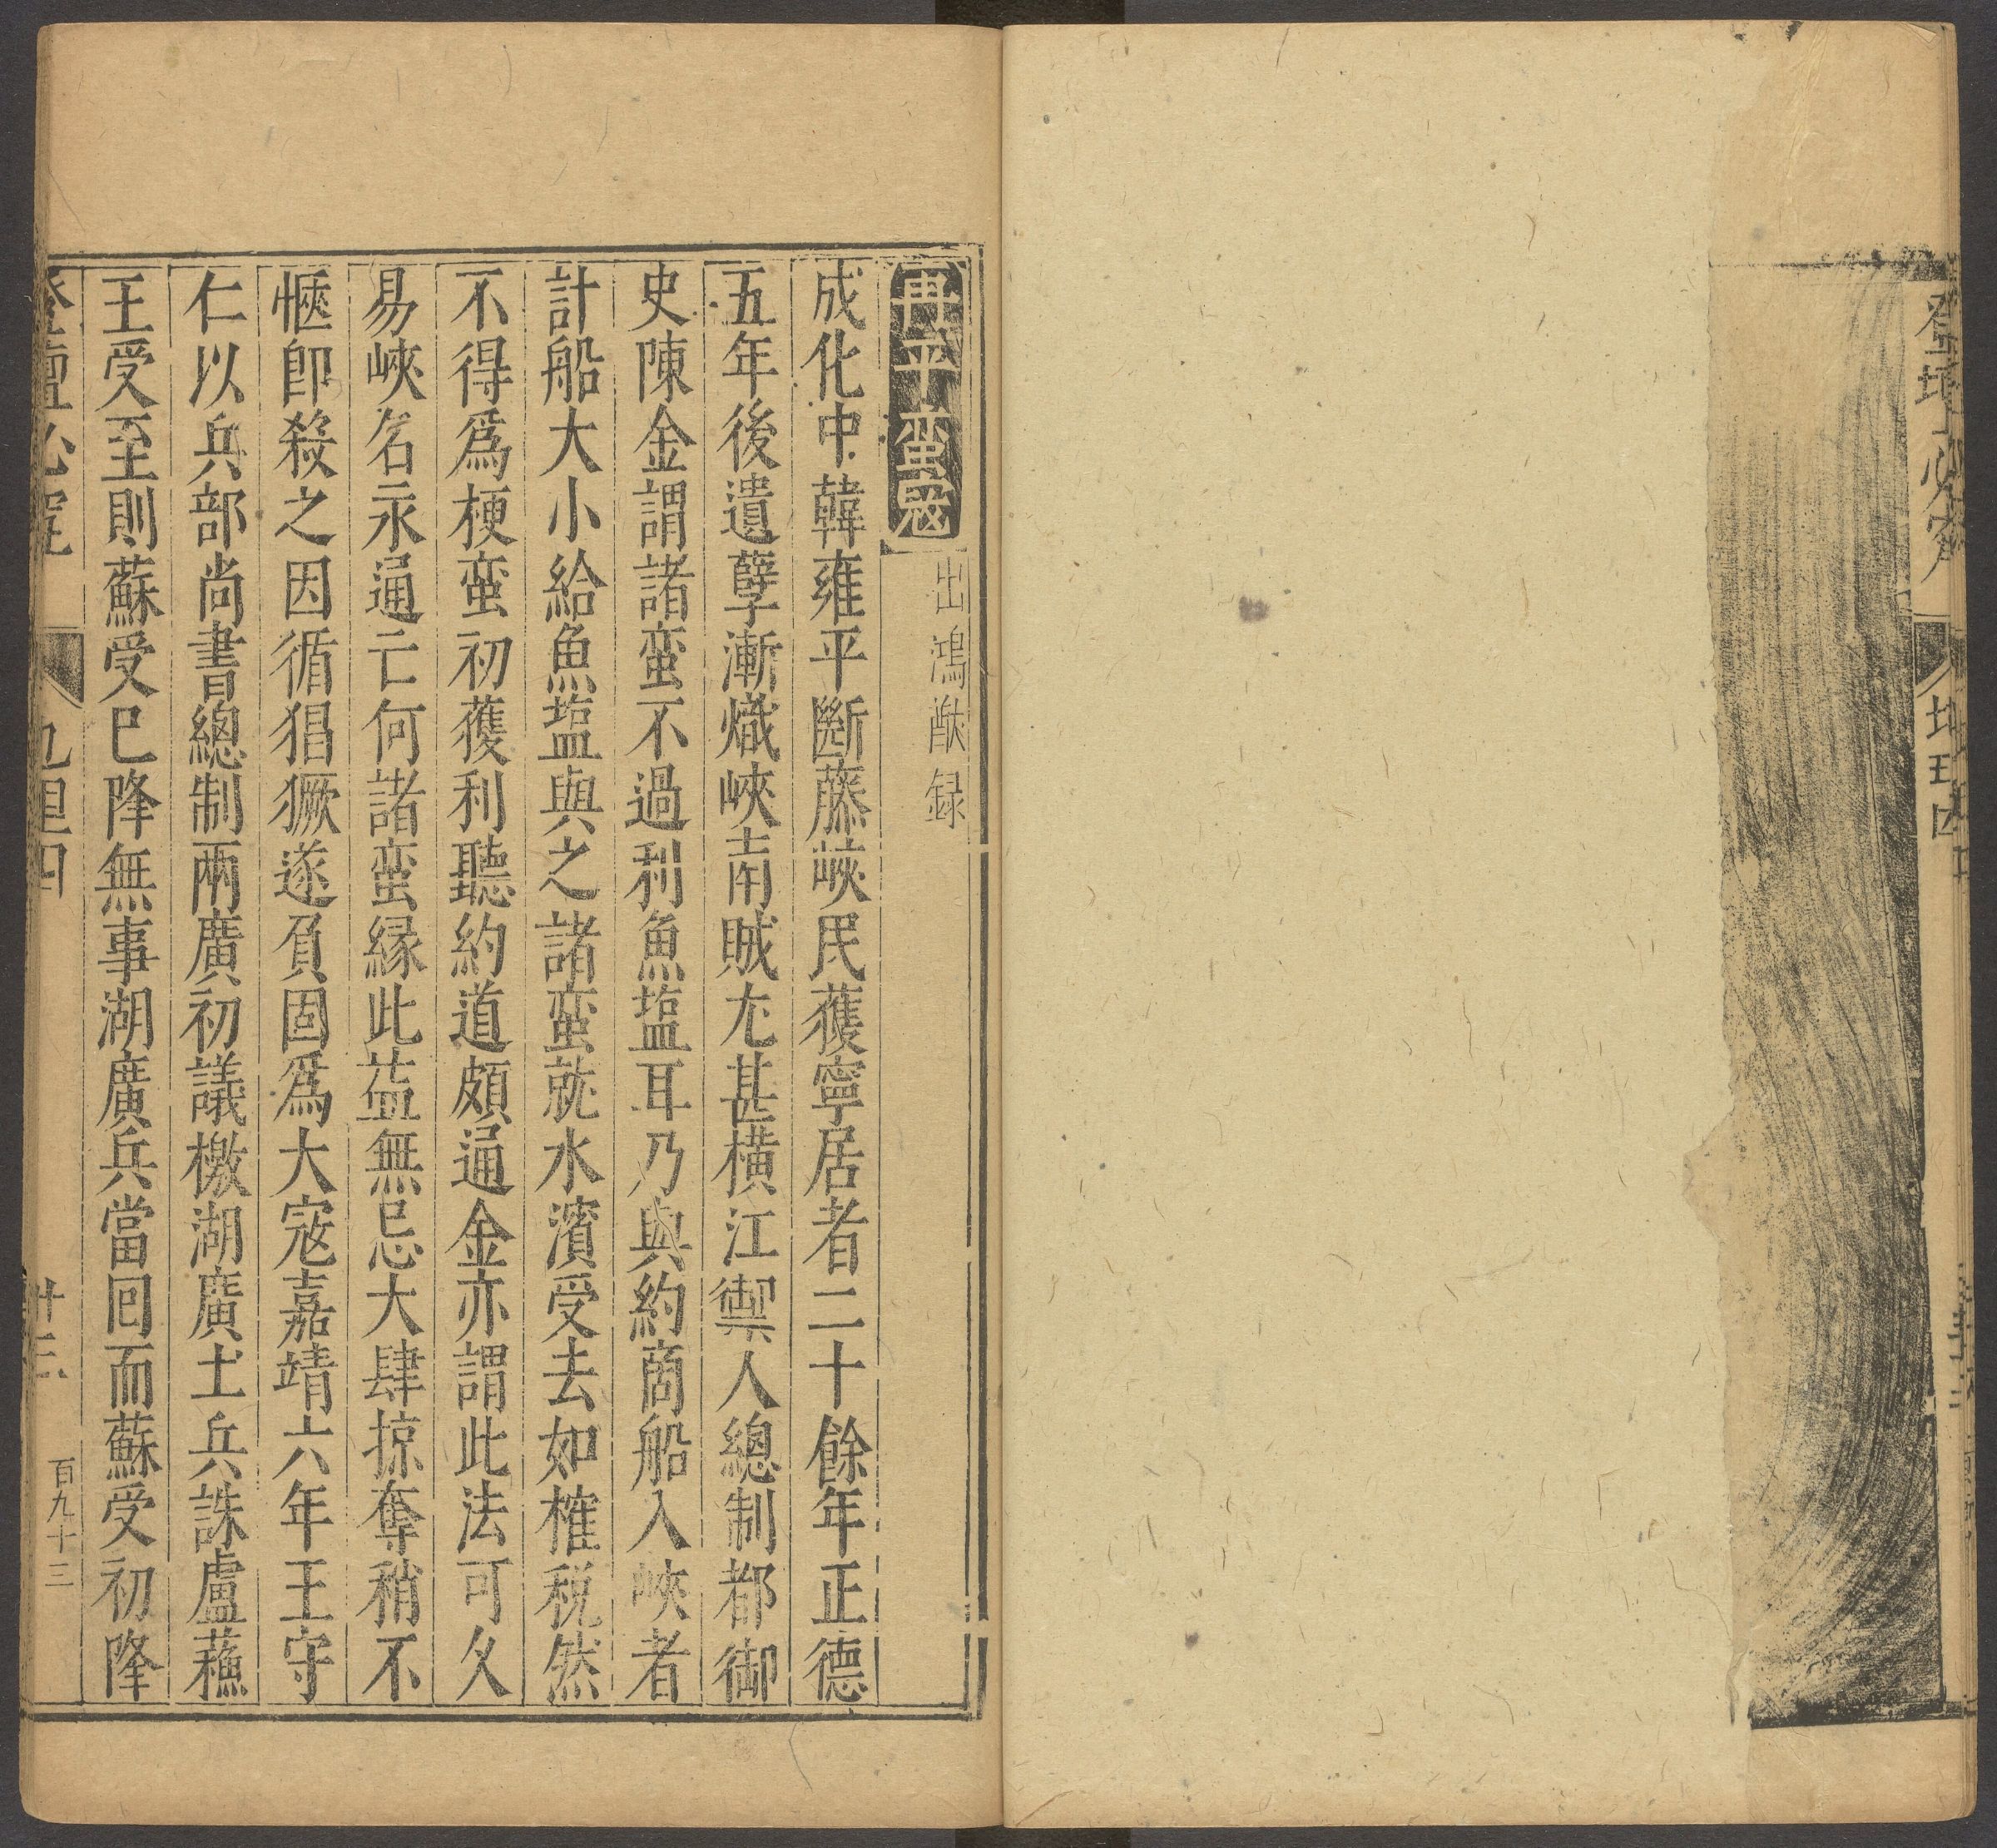 登壇必究
再平蛮寇 出鴻猷録
成化中韓雍平斷藤峽民獲寧居者二十餘年正德
五年後遺孽漸熾峽南賊尤甚橫江禦人總制都御
史陳金謂諸蛮不過利魚塩耳乃與約商船入峽者
計船大小給魚塩與之諸蛮就水濱受去如榷稅然
不得爲梗蛮初獲利聽約道頗通金亦謂此法可久
易峽名永通亡何諸蛮縁此益無忌大肆掠奪稍不
愜即殺之因循猖獗遂負固爲大寇嘉靖六年王守
仁以兵部尚書總制兩廣初議檄湖廣土兵誅盧蘓
王受至則蘇受已降無事湖廣兵當回而蘇受初降
登壇必究
百九十三